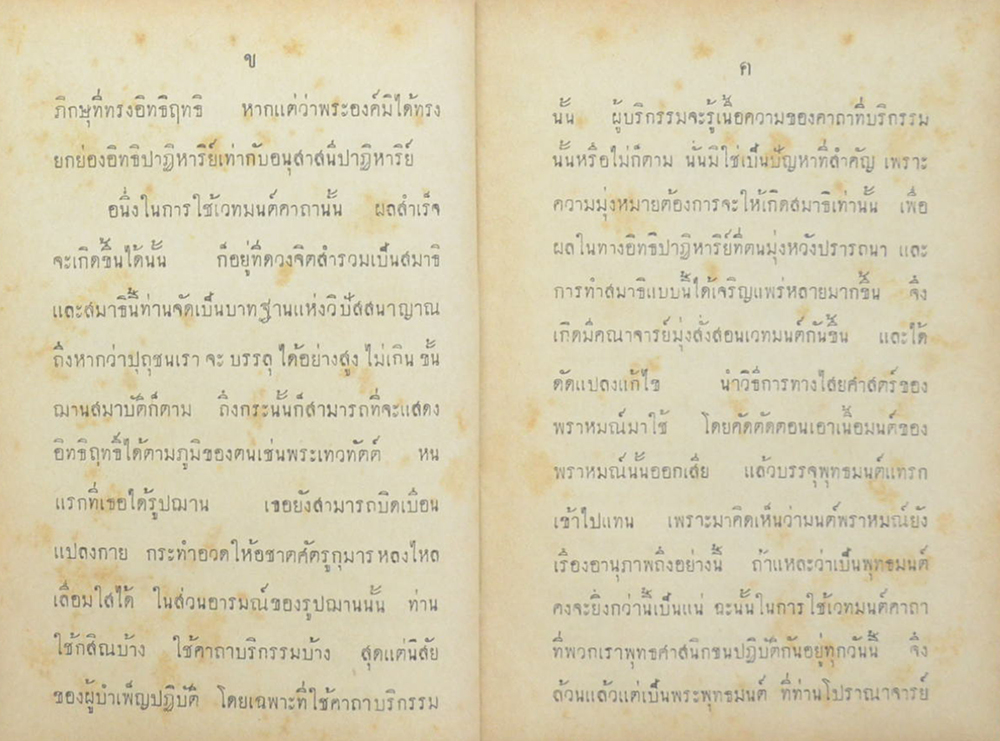 ข
ภิกษุที่ทรงอิทธิฤทธิ หากแต่ว่าพระองค์มิได้ทรง
ยกย่องอิทธิปาฏิหาริย์เท่ากับอนุสาสนีปาฏิหาริย์
อนึ่งในการใช้เวทมนต์คาถานั้น ผลสำเร็จ
จะเกิดขึ้นได้นั้น ก็อยู่ที่ดวงจิตสำรวมเป็นสมาธิ
และสมาธินี้ท่านจัดเป็นบาทฐานแห่งวิปัสสนาญาณ
ถึงหากว่าปุถุชนเรา จะ บรรลุ ได้อย่างสูง ไม่เกิน ขั้น
ฌานสมาบัติก็ตาม ถึงกระนั้นก็สามารถที่จะแสดง
อิทธิฤทธิ์ได้ตามภูมิของตนเช่นพระเทวทัตต์ หน
แรกที่เธอได้รูปฌาน เธอยังสามารถบิดเบือน
แปลงกาย กระทำอวดให้อชาตศัตรูกุมารหลงใหล
เลื่อมใสได้ ในส่วนอารมณ์ของรูปฌานนั้น ท่าน
ใช้กสิณบ้าง ใช้คาถาบริกรรมบ้าง สุดแต่นิสัย
ของผู้บำเพ็ญปฏิบัติ โดยเฉพาะที่ใช้คาถาบริกรรม
ค
นั้น ผู้บริกรรมจะรู้เนื้อความของคาถาที่บริกรรม
นั้นหรือไม่ก็ตาม นั่นมิใช่เป็นปัญหาที่สำคัญ เพราะ
ความมุ่งหมายต้องการจะให้เกิดสมาธิเท่านั้น เพื่อ
ผลในทางอิทธิปาฏิหาริย์ที่ตนมุ่งหวังปรารถนา และ
การทำสมาธิแบบนี้ได้เจริญแพร่หลายมากขึ้น จึง
เกิดมีคณาจารย์มุ่งสั่งสอนเวทมนต์กันขึ้น และได้
ดัดแปลงแก้ไข นำวิธีการทางไสยศาสตร์ของ
พราหมณ์มาใช้ โดยคัดตัดตอนเอาเนื้อมนต์ของ
พราหมณ์นั้นออกเสีย แล้วบรรจุพุทธมนต์แทรก
เข้าไปแทน เพราะมาคิดเห็นว่ามนต์พราหมณ์ยัง
เรื่องอานุภาพถึงอย่างนี้ ถ้าแหละว่าเป็นพุทธมนต์
คงจะยิ่งกว่านี้เป็นแน่ ฉะนั้นในการใช้เวทมนต์คาถา
ที่พวกเราพุทธศาสนิกชนปฏิบัติกันอยู่ทุกวันนี้ จึง
ล้วนแล้วแต่เป็นพระพุทธมนต์ ที่ท่านโปราณาจารย์